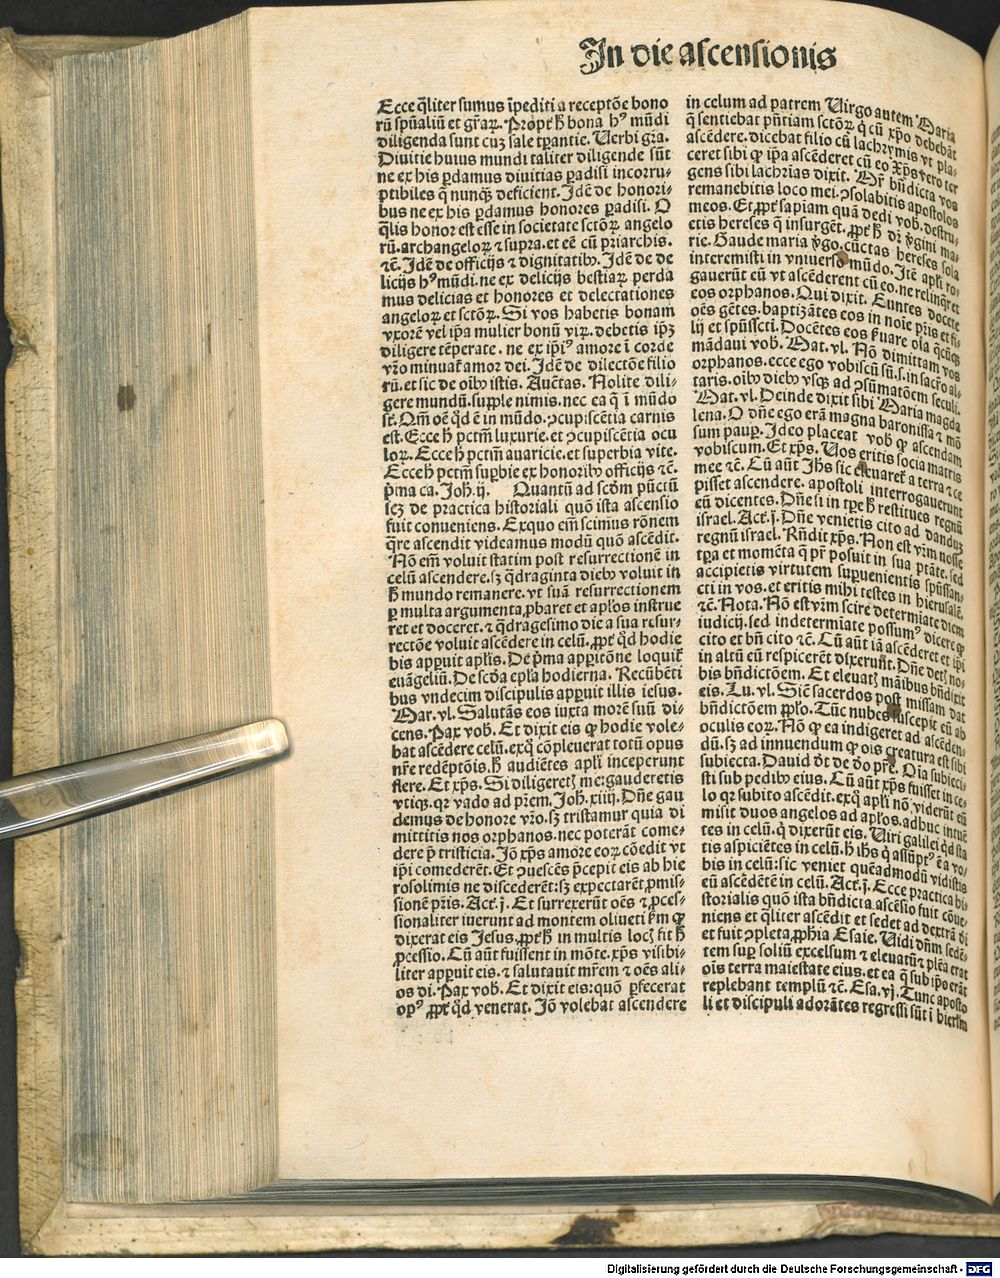 In die ascensionis
Ecce q̃liter sumus ĩpediti a receptõe bono
rũ spũaliũ et gr̃aꝝ. Propt̃ ħ bona hꝰ mũdi
diligenda sunt cuȝ sale tꝑantie. Uerbi gr̃a.
Diuitie huius mundi taliter diligende sũt
ne ex his ꝑdamus diuitias ꝑadisi incorru⸗
ptibiles q̃ nunqȝ deficient. Idẽ de honori⸗
bus ne ex his ꝑdamus honores ꝑadisi. O
q̃lis honor est esse in societate sctõꝝ angelo
rũ. archangeloꝝ ⁊ supra. et eẽ cũ pr̃iarchis.
⁊c̃. Idẽ de officijs ⁊ dignitatibꝰ. Idẽ de de
licijs hꝰ mũdi. ne ex delicijs bestiaꝝ perda
mus delicias et honores et delectationes
angeloꝝ et sctõꝝ. Si vos habetis bonam
vxorẽ vel ip̃a mulier bonũ viꝝ. debetis ip̃ȝ
diligere tẽperate. ne ex ip̃iꝰ amore ĩ corde
vr̃o minuat̃ amor dei. Idẽ de dilectõe filio
rũ. et sic de oĩbꝰ istis. Auẽtas. Nolite dili⸗
gere mundũ. supple nimis. nec ea q̃ ĩ mũdo
st̃. Qm̃ oẽ qd̃ ẽ in mũdo. ↄcupiscẽtia carnis
est. Ecce ħ pctm̃ luxurie. et ↄcupiscẽtia ocu
loꝝ. Ecce ħ pctm̃ auaricie. et superbia vite.
Ecce ħ pctm̃ suꝑbie ex honoribꝰ officijs ⁊c̃.
p̃ma ca. Joh̃. ij. Quantũ ad scd̃m pũctũ
scȝ de practica historiali quõ ista ascensio
fuit conueniens. Exquo em̃ scimus rõnem
q̃re ascendit videamus modũ quõ ascẽdit.
Nõ em̃ voluit statim post resurrectionẽ in
celũ ascendere. sȝ q̃draginta diebꝰ voluit in
ħ mundo remanere. vt suã resurrectionem
ꝑ multa argumenta ꝓbaret et apl̃os instrue
ret et doceret. ⁊ q̃dragesimo die a sua resur⸗
rectõe voluit ascẽdere in celũ. ꝓpt̃ qd̃ hodie
bis apꝑuit apl̃is. De p̃ma apparitõne loquit̃
euãgeliũ. De scd̃a epl̃a hodierna. Recũbẽti
bus vndecim discipulis apꝑuit illis iesus.
Mar. vl. Salutãs eos iuxta morẽ suũ di⸗
cens. Pax vob̃. Et dixit eis ꝙ hodie vole⸗
bat ascẽdere celũ. exq̃ cõpleuerat totũ opus
nr̃e redẽptõis. ħ audiẽtes apl̃i inceperunt
flere. Et xp̃s. Si diligeretꝭ me: gauderetis
vtiqȝ. qꝛ vado ad pr̃em. Joh̃. xiiij. Dñe gau
demus de honore vr̃o. sȝ tristamur quia di
mittitis nos orphanos. nec poterãt come⸗
dere p̃ tristicia. Iõ xp̃s amore eoꝝ cõedit vt
ip̃i comederẽt. Et ↄuescẽs p̃cepit eis ab hie
rosolimis ne discederẽt: sȝ expectarẽt ꝓmis⸗
sionẽ pr̃is. Act̃. j. Et surrexerũt oẽs ⁊ ꝓces⸗
sionaliter iuerunt ad montem oliueti km̃ ꝙ
dixerat eis Jesus. ꝓpt̃ ħ in multis locꝭ fit ħ
ꝓcessio. Cũ aũt fuissent in mõte. xp̃s visibi⸗
liter apꝑuit eis. ⁊ salutauit mr̃em ⁊ oẽs ali⸗
os di. Pax vob̃. Et dixit eis: quõ ꝑfecerat
opꝰ ꝓpt̃ qd̃ venerat. Iõ volebat ascendere
in celum ad patrem Uirgo autem Maria
q̃ sentiebat pñtiam sctõꝝ q̃ cũ xp̃o debebãt
ascẽdere. dicebat filio cũ lachrymis vt pla⸗
ceret sibi ꝙ ip̃a ascẽderet cũ eo Xp̃s vero ter
gens sibi lachrĩas dixit. Mr̃ bñdicta vos
remanebitis loco mei. ↄsolabitis apostolos
meos. Et ꝓpt̃ sapiam quã dedi vob̃. destru⸗
etis hereses q̃ insurgẽt. ꝓpt̃ ħ dr̃ v̓gini ma⸗
rie. Gaude maria v̓go. cũctas hereses sola
interemisti in vniuerso mũdo. Itẽ apl̃i ro⸗
gauerũt eũ vt ascẽderent cũ eo. ne relinq̃ret
eos orphanos. Qui dixit. Euntes docete
oẽs gẽtes. baptizãtes eos in noĩe pr̃is et fi⸗
lij et spũssctĩ. Docẽtes eos s̓uare oĩa q̃cũqȝ
mãdaui vob̃. Mat. vl. Nõ dimittam vos
orphanos. ecce ego vobiscũ sũ. s. in sacr̃o al⸗
taris. oĩbꝰ diebꝰ vsqȝ ad ↄsũmatõem seculi.
Mat. vl. Deinde dixit sibi Maria magda
lena. O dñe ego erã magna baronissa ⁊ mõ
sum pauꝑ. Ideo placeat vob̃ ꝙ ascendam
vobiscum. Et xp̃s. Uos eritis socia matris
mee ⁊c̃. Cũ aũt Ihs̃ sic eleuaret̃ a terra ⁊ ce
pisset ascendere. apostoli interrogauerunt
eũ dicentes. Dñe si in tꝑe ħ restitues regnũ
israel. Act̃. j. Dñe venietis cito ad danduȝ
regnũ israel. Rñdit xp̃s. Non est vr̃m nosse
tꝑa et momẽta q̃ pr̃ posuit in sua ptãte. sed
accipietis virtutem suꝑuenientis spũssan⸗
cti in vos. et eritis mihi testes in hierusalẽ.
⁊c̃. Nota. Nõ est vr̃m scire determĩate diem
iudicij. sed indeterminate possumꝰ dicere ꝙ
cito et bñ cito ⁊c̃. Cũ aũt iã ascẽderet et ip̃i
in altũ eũ respicerẽt dixerũt. Dñe detꝭ no⸗
bis bñdictõem. Et eleuatꝭ mãibus bñdixit
eis. Lu. vl. Sicut sacerdos post missam dat
bñdictõem pp̃lo. Tũc nubes suscepit eũ ab
oculis eoꝝ. Nõ ꝙ ea indigeret ad ascẽden⸗
dũ. sȝ ad innuendum ꝙ oĩs creatura est sibi
subiecta. Dauid dt̃ de d̃o pr̃e. Oĩa subieci⸗
sti sub pedibꝰ eius. Cũ aũt xp̃s fuisset in ce⸗
lo qꝛ subito ascẽdit. exq̃ apl̃i nõ viderũt eũ
misit duos angelos ad apl̃os. adhuc intuẽ
tes in celũ. q̃ dixerũt eis. Uiri galilei qd̃ sta
tis aspiciẽtes in celũ. ħ ihs̃ q̃ assũptꝰ ẽ a vo⸗
bis in celũ: sic veniet quẽadmodũ vidistis
eũ ascẽdẽtẽ in celũ. Act̃. j. Ecce practica hi⸗
storialis quõ ista bñdicta ascẽsio fuit cõue⸗
niens et q̃liter ascẽdit et sedet ad dextrã di
et fuit ↄpleta ꝓphia Esaie. Uidi dñm sedẽ⸗
tem suꝑ soliũ excelsum ⁊ eleuatũ ⁊ plẽa erat
oĩs terra maiestate eius. et ea q̃ sub ip̃o erãt
replebant templũ ⁊c̃. Esa. vj. Tunc aposto
li et discipuli adorãtes regressi sũt ĩ hierlm̃
Digitalisierung gefördert durch die Deutsche Forschungsgemeinschaft - DFG